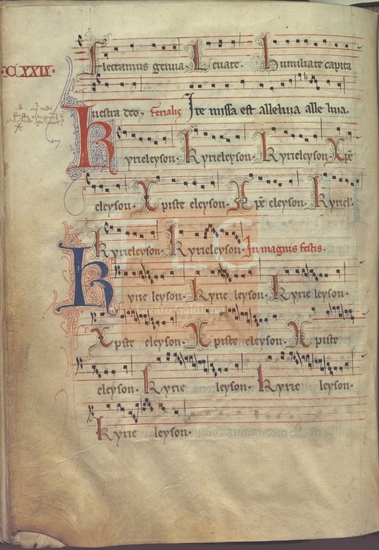 CXXIX.
Flectamus genua. Levate. Humiliate capita
vestra deo. ferialis Ite missa est alleluia alleluia.
Kyrieleyson. Kyrieleyson. Kyrieleyson. Xpe
eleyson. Xpiste eleyson. Xpe eleyson. Kyriel.
Kyrieleyson. Kyrieleyson. In magnis festis.
Kyrie leyson. Kyrie leyson. Kyrie leyson.
Xpiste eleyson. Xpiste eleyson. Xpiste
eleyson. Kyrie leyson. Kyrie leyson.
Kyrie leyson.